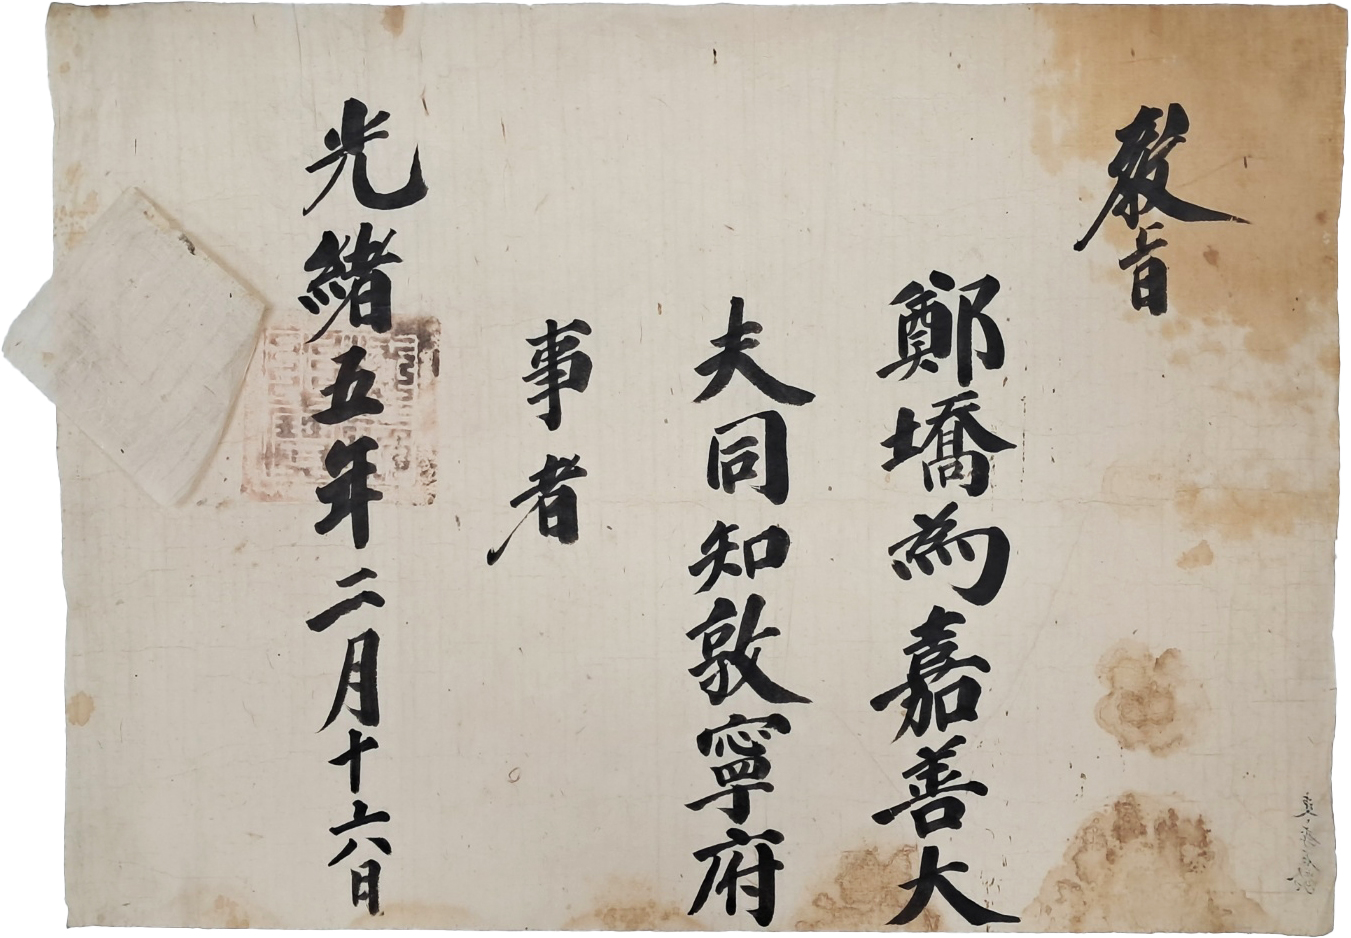 敎旨
鄭墧為嘉善大
夫同知敦寧府
事者
光緒五年二月十六日